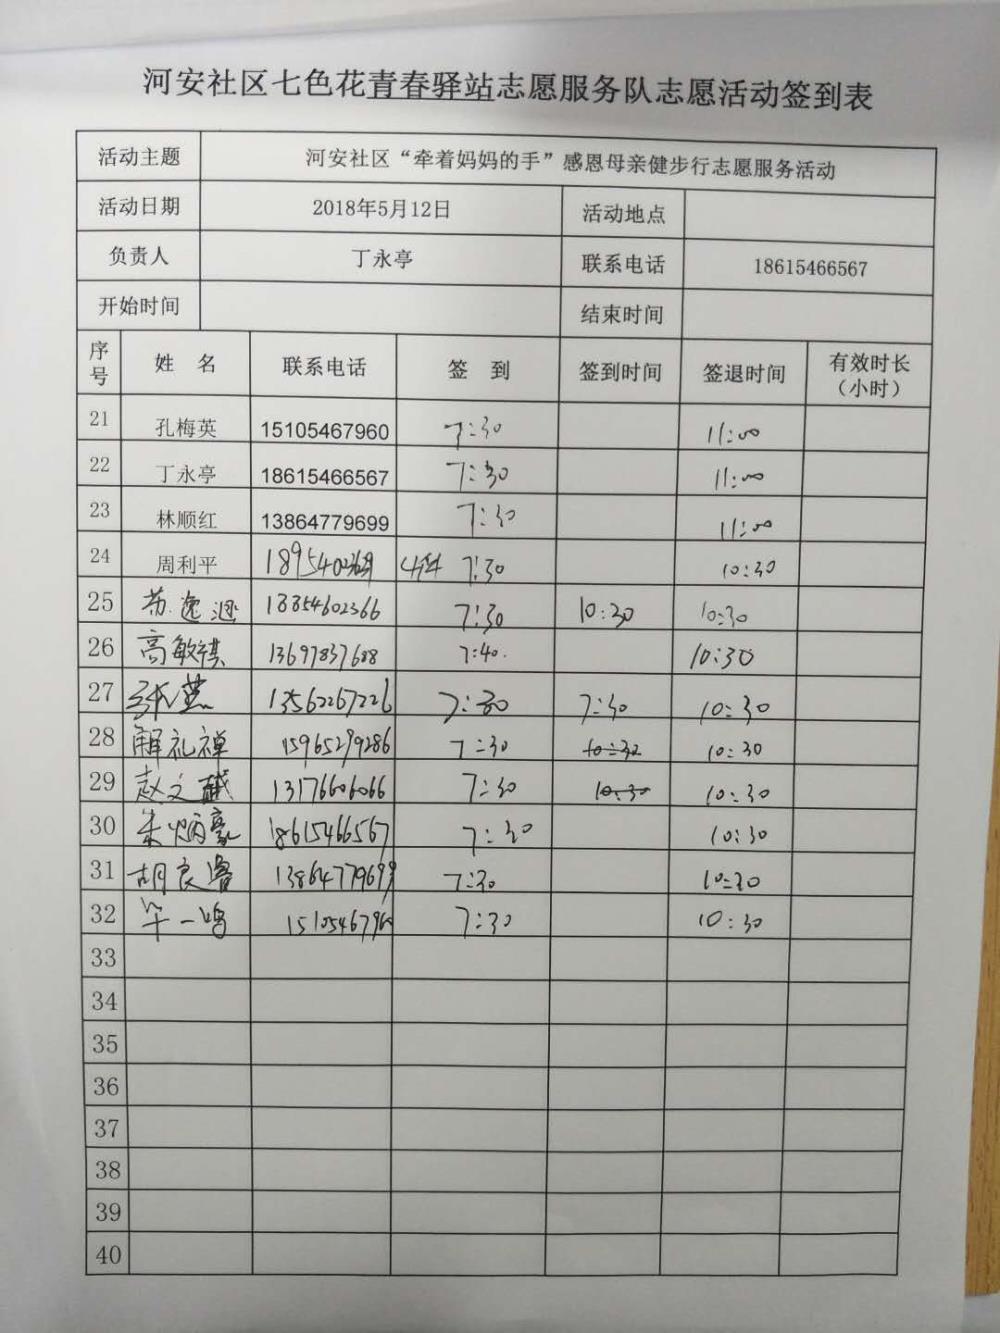 河安社区七色花青春驿站志愿服务队志愿活动签到表
活动主题 河安社区“牵着妈妈的手”感恩母亲健步行志愿服务活动
活动日期 2018年5月12日 活动地点
负责人 丁永亭 联系电话 18615466567
开始时间 结束时间
序号 姓 名 联系电话 签 到 签到时间 签退时间 有效时长（小时）
21 孔梅英 15105467960 7:30 11:00
22 丁永亭 18615466567 7:30 11:00
23 林顺红 13864779699 7:30 11:00
24 周利平 7:30 10:30
25 18854602366 7:30 10:30 10:30
26 高敏祺 13697837688 7:40. 10:30
27 13562267226 7:30 7:30 10:30
28 解礼禅 15965299286 7:30 10:30 10:30
29 赵文 13176606066 7:30 10:30 10:30
30 朱炳豪 18615466567 7:30 10:30
31 胡良鲁 13864779699 7:30 10:30
32 一鸣 15105467960 7:30 10:30
33
34
35
36
37
38
39
40